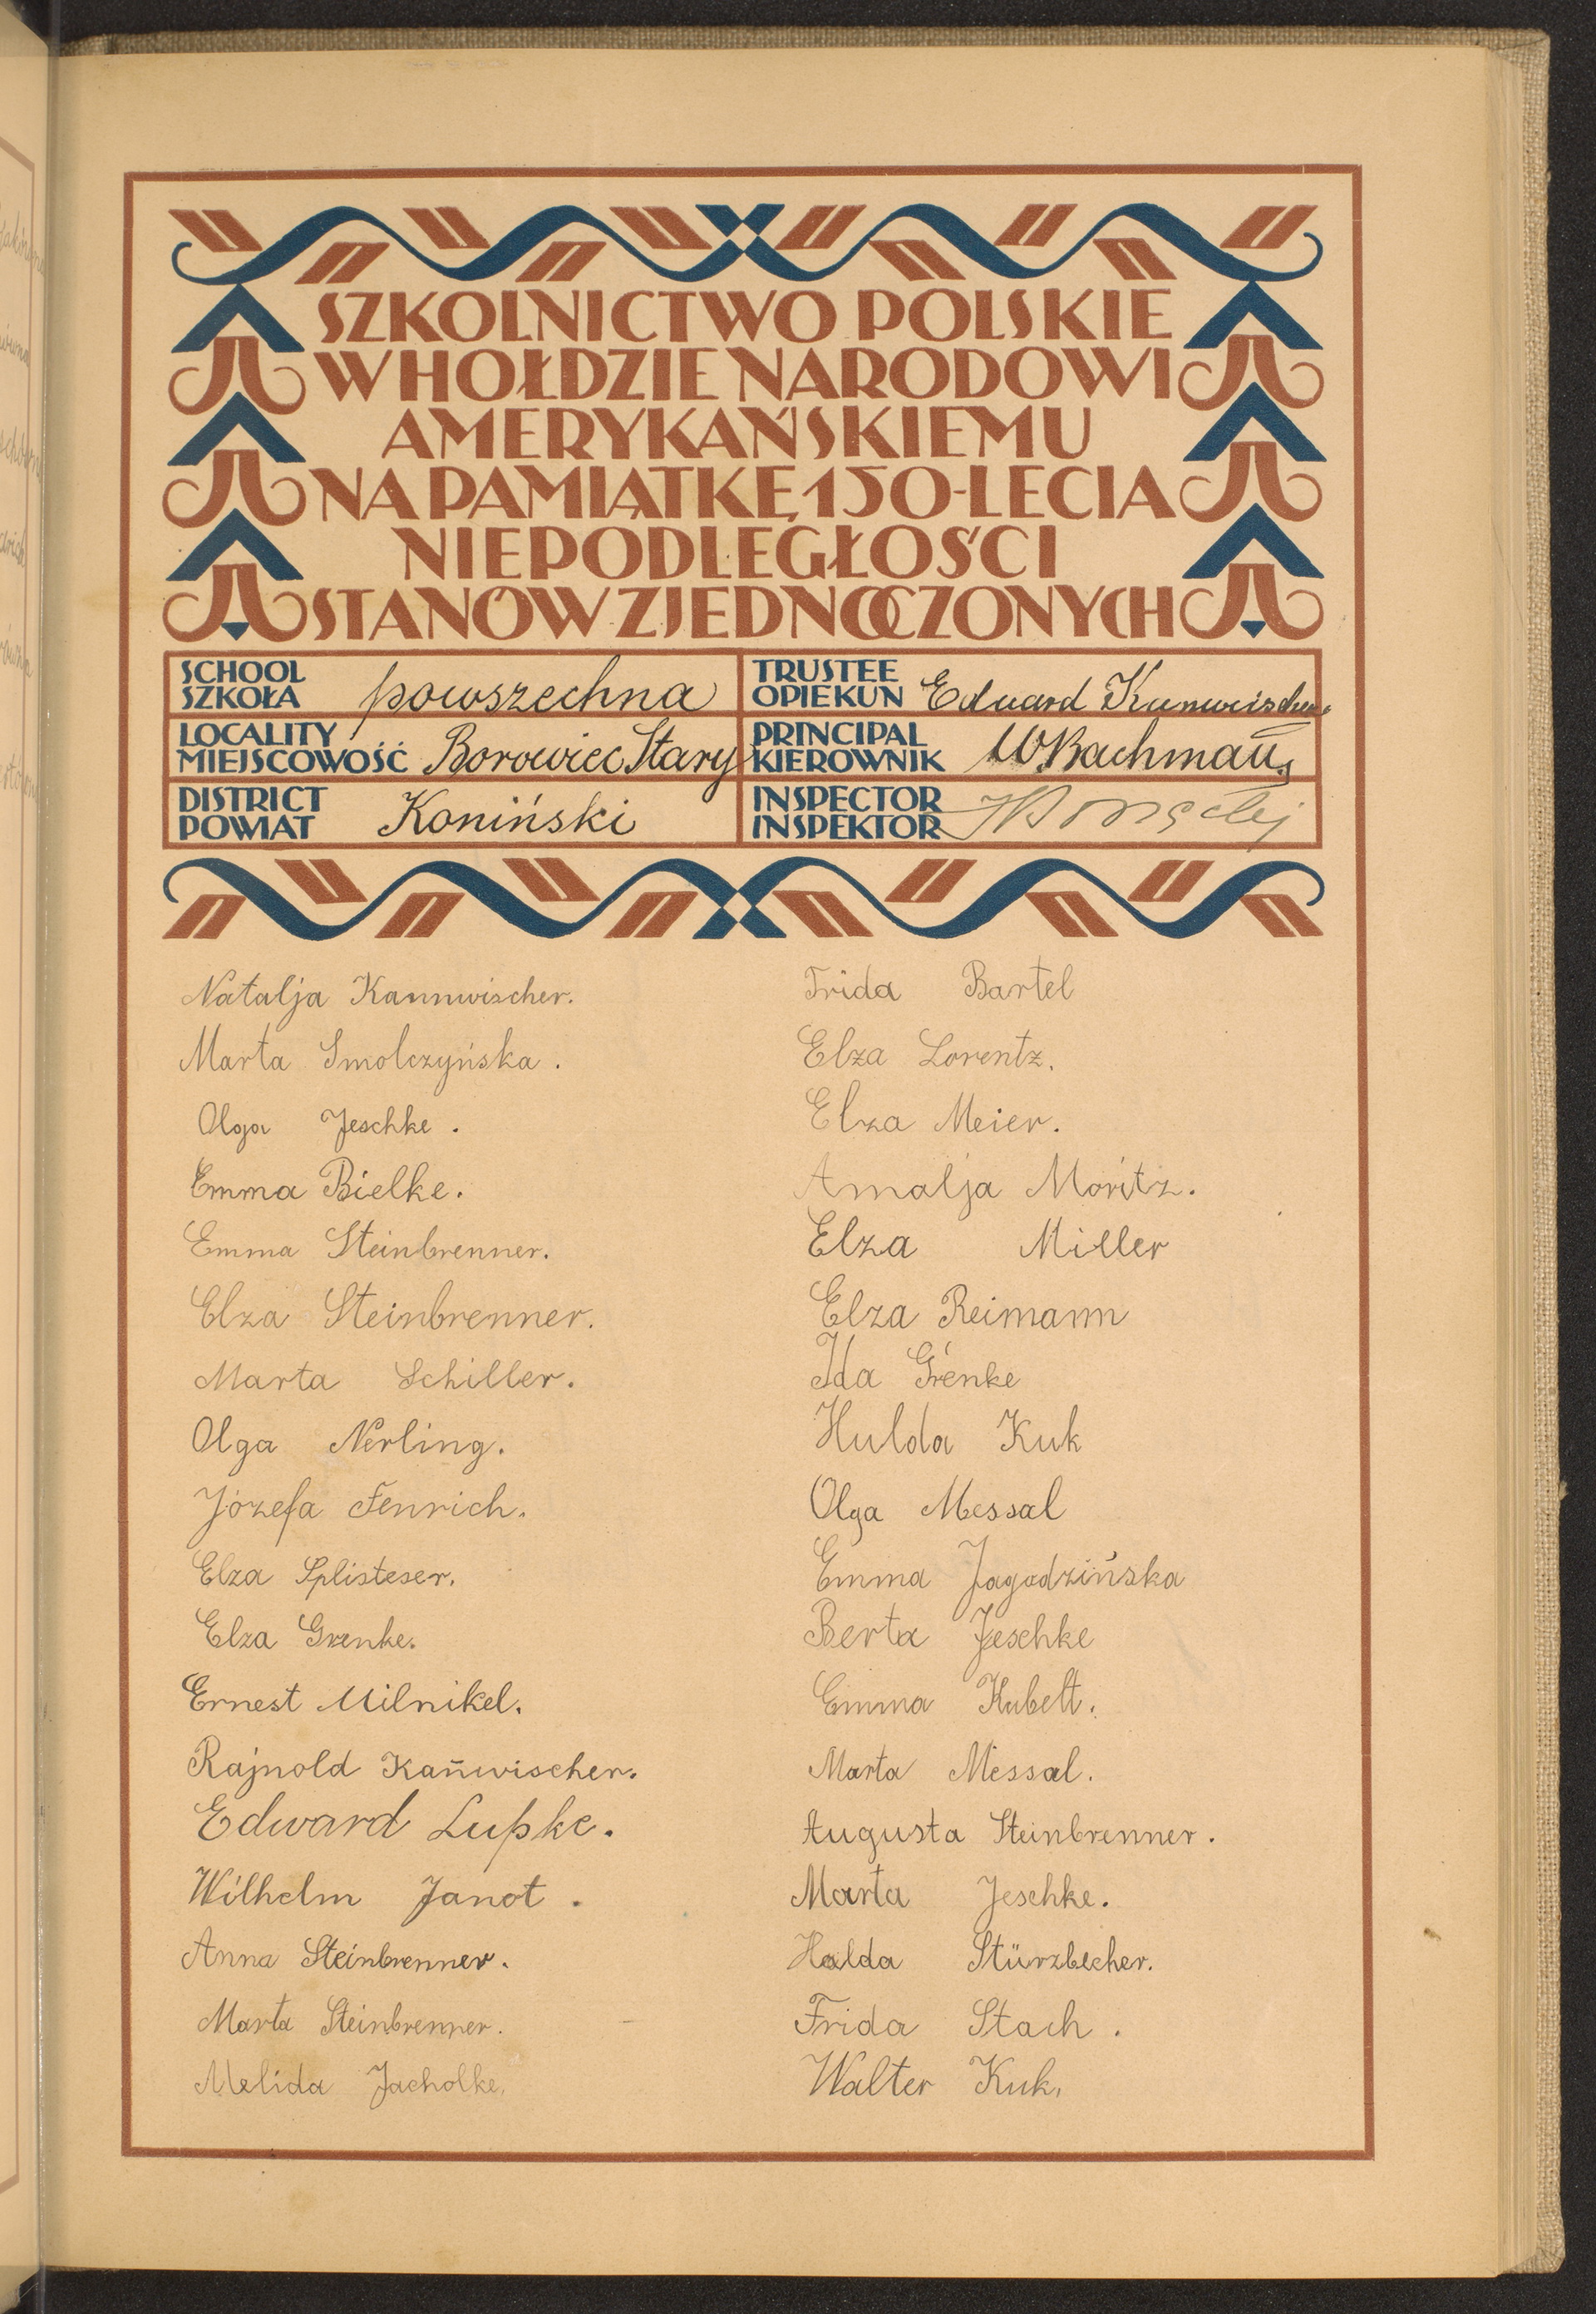 SZKOLNICTWO POLSKIE
W HOŁDZIE NARODOWI
AMERYKAŃSKIEMU
NA PAMIĄTKĘ 150-LECIA
NIEPODLEGŁOŚCI
STANÓW ZJEDNOCZONYCH
SCHOOL
SZKOŁA powszechna
TRUSTEE
OPIEKUN Eduard
LOCALITY
MIEJSCOWOŚĆ Borowiec Stary
PRINCIPAL
KIEROWNIK WBachmañ
DISTRICT
POWIAT Koniński
INSPECTOR
INSPEKTOR
Natalja Kannwischer.
Marta Smolczyńska.
Olga Jeschke.
Emma Bielke.
Emma Steinbrenner.
Elza Steinbrenner.
Marta Schiller.
Olga Nerling.
Józefa Fenrich.
Elza Splisteser.
Elza Grenke.
Ernest Milnikel.
Rajnold Kañwischer.
Edward Lupke.
Wilhelm Janot.
Anna Steinbrenner.
Marta Steinbrenner.
Melida Jacholke.
Frida Bartel
Elza Lorentz.
Elza Meier.
Amalja Moritz.
Elza Miller
Elza Reimann
Ida Grenke
Hulda Kuk
Olga Messal
Emma Jagodzińska
Berta Jeschke
Emma Hubelt.
Marta Messal.
Augusta Steinbrenner.
Marta Jeschke.
Halda Stürzbecher.
Frida Stach.
Walter Kuk.